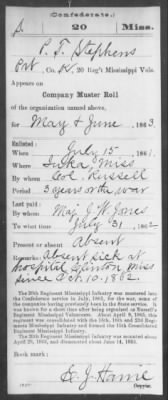 (Confederate.)
S 20 Miss.
P. T. Stephens
Pvt, Co. K, 20 Reg't Mississippi Vols.
Appears on
Company Muster Roll
of the organization named above,
for May & June, 1863.
Enlisted:
When July 15, 1861.
Where Iuka Miss
By whom Col. Russell
Period 3 years or the war
Last paid:
By whom Maj J. W. Jones
To what time July 31, 1862.
Present or absent Absent
Remarks: Absent sick at
hospital Clinton, Miss
since Oct. 10. 1862.
The 20th Regiment Mississippi Infantry was mustered into
the Confederate service in July, 1861, for the war, some of
the companies having previously been in the State service. It
was known for a short time after its organization as Russell's
Regiment Mississippi Volunteers. About April 9, 1865, this
regiment was consolidated with the 6th, 15th and 23d Regiments
Mississippi Infantry and formed the 15th Consolidated
Regiment Mississippi Infantry.
Book mark:
Copyist.